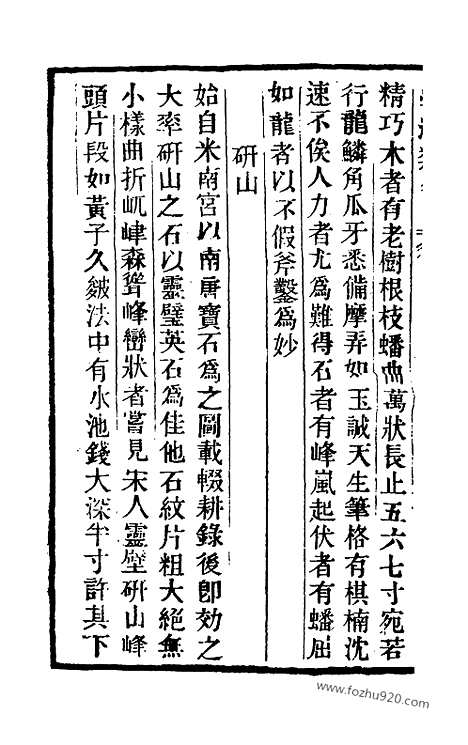 精巧木者有老樹根枝蟠曲萬狀長止五六七寸宛若
行龍鱗角瓜牙悉備摩弄如玉誠天生筆格有棋楠沈
速不俟人力者尤爲難得石者有峰嵐起伏者有蟠屈
如龍者以不假斧鑿爲妙
研山
始自米南宮以南唐寶石爲之圖載輟耕錄後卽効之
大率研山之石以靈璧英石爲佳他石紋片粗大絕無
小樣曲折屼峍森聳峰巒狀者嘗見宋人靈璧研山峰
頭片段如黃子久皴法中有水池錢大深半寸許其下
www.fozhu920.com